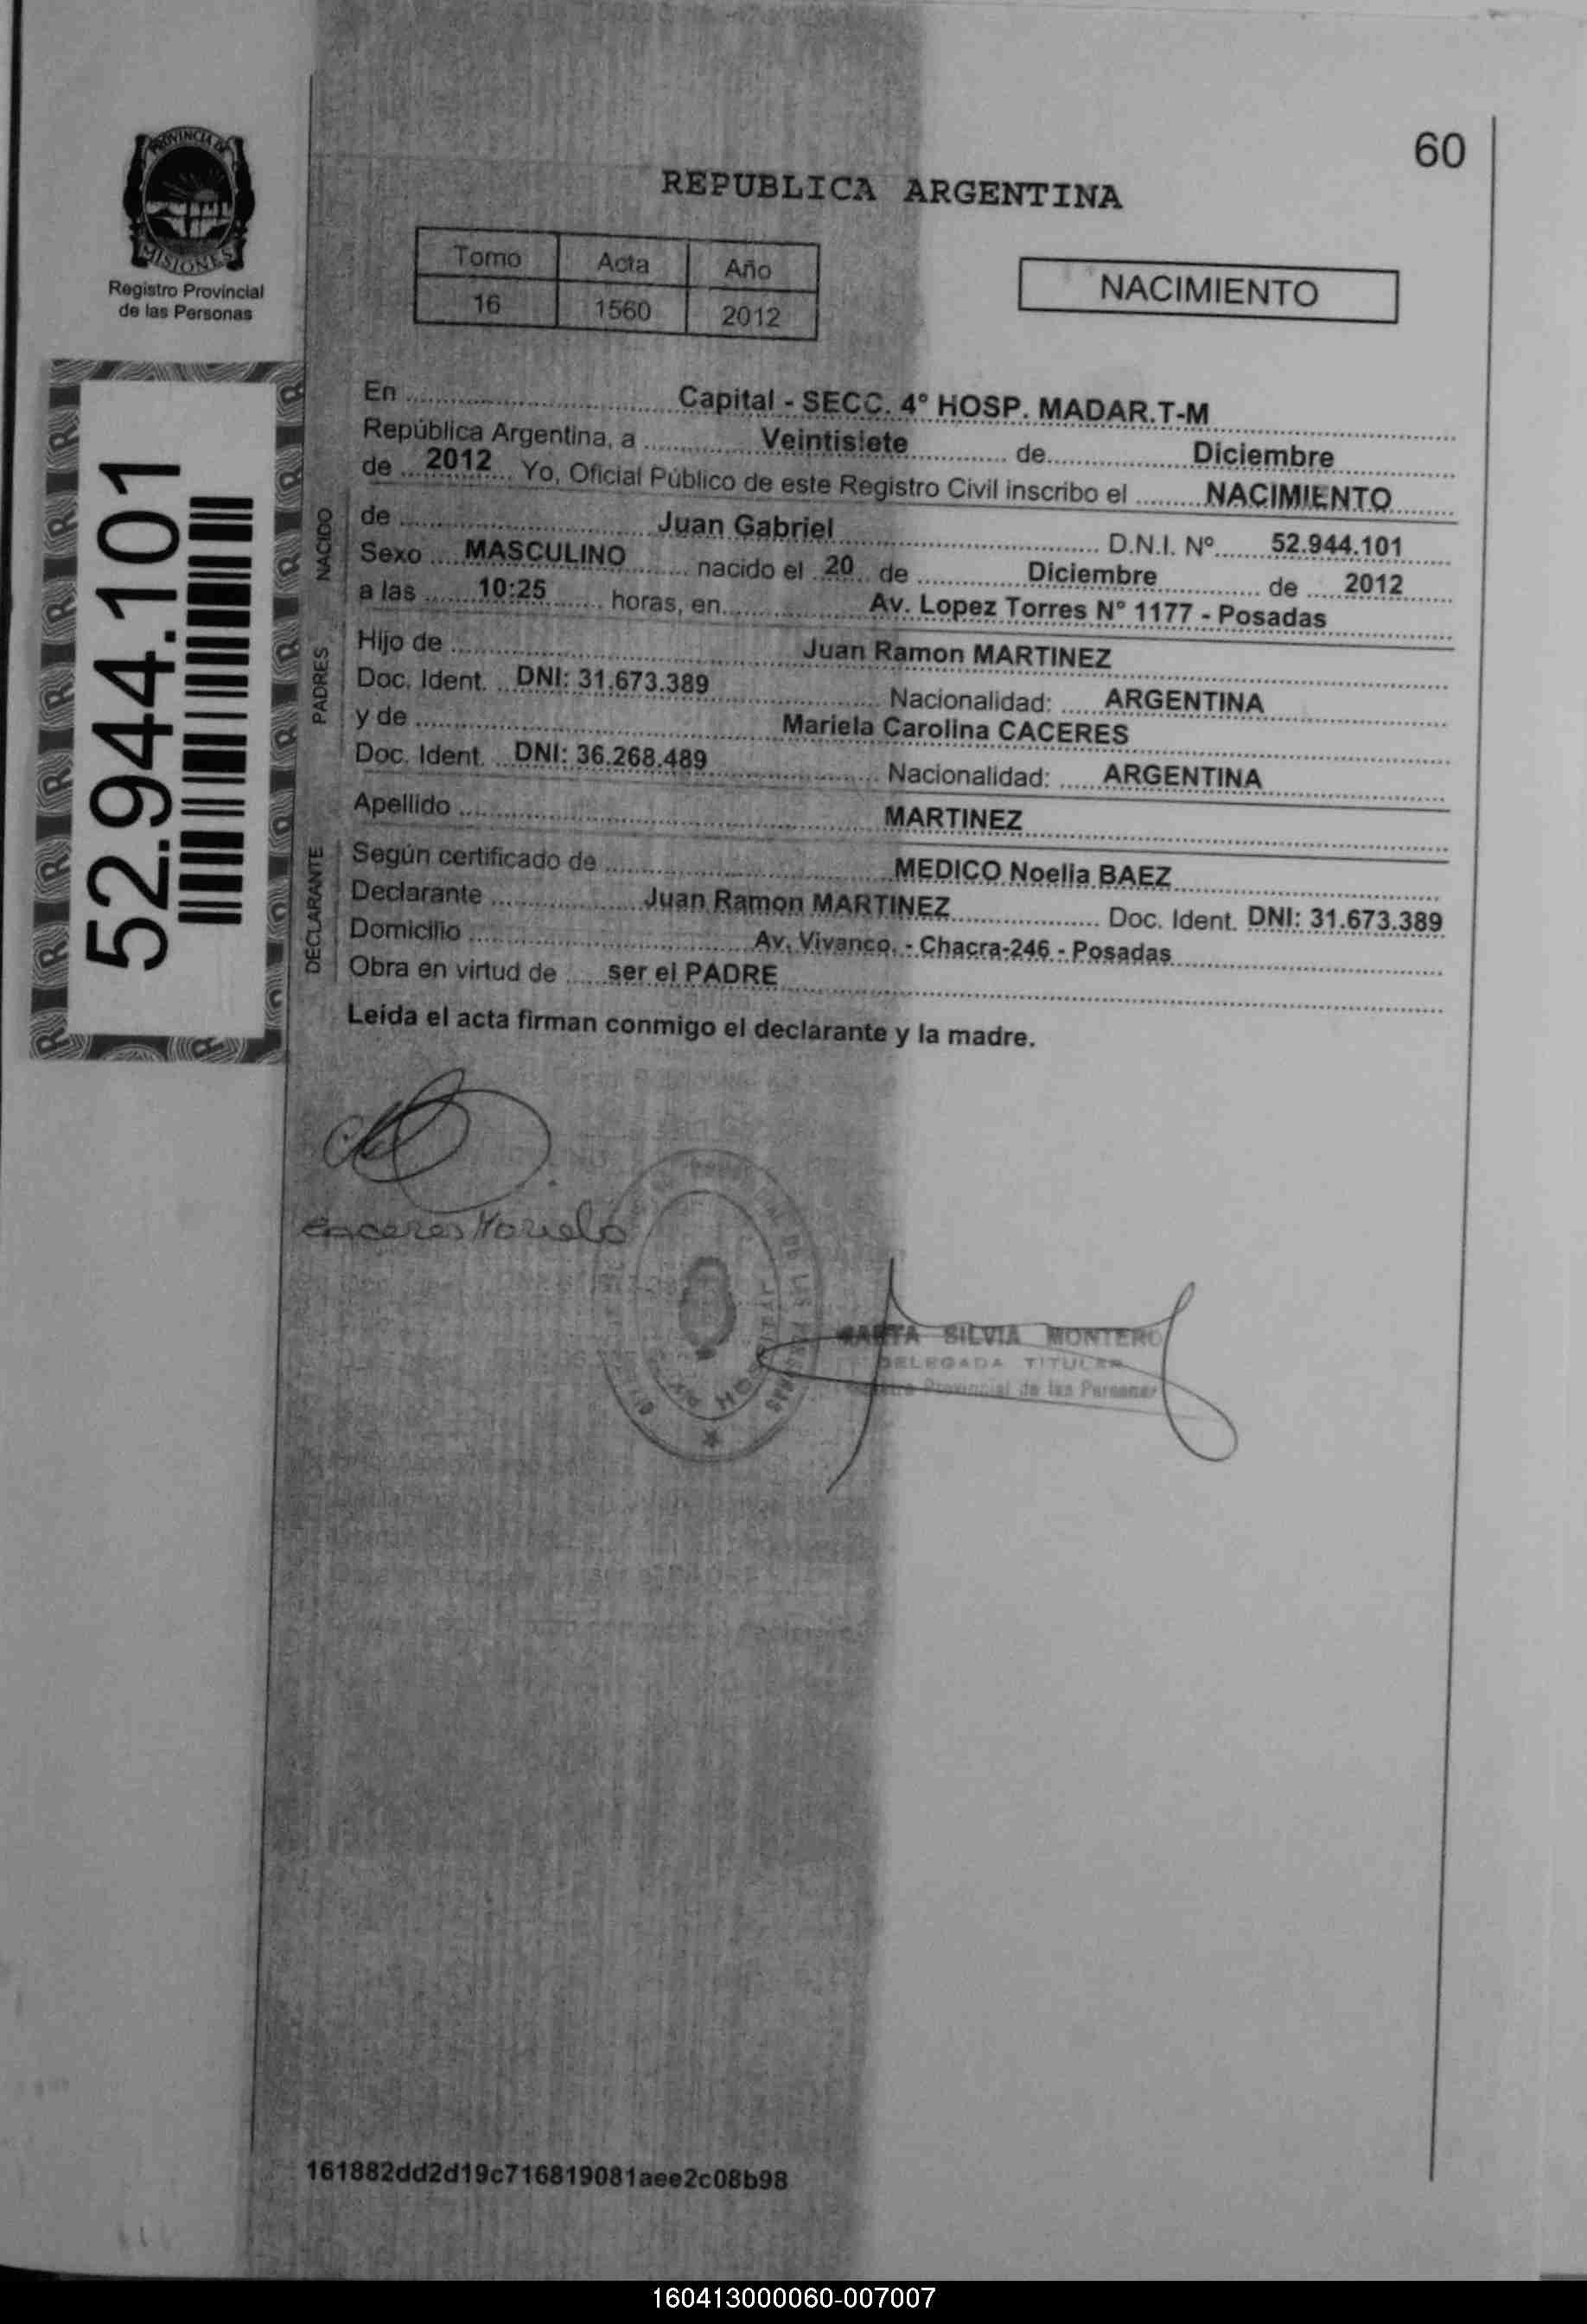 60
PROVINCIA DE
MISIONES
Registro Provincial
de las Personas
REPUBLICA ARGENTINA
Tomo Acta Año
16 1560 2012
NACIMIENTO
52.944.101
En Capital - SECC. 4° HOSP. MADAR.T-M
República Argentina, a Veintisiete de Diciembre
de 2012 Yo, Oficial Público de este Registro Civil inscribo el NACIMIENTO
NACIDO
de Juan Gabriel D.N.I. Nº 52.944.101
Sexo MASCULINO nacido el 20 de Diciembre de 2012
a las 10:25 horas, en Av. Lopez Torres N° 1177 - Posadas
PADRES
Hijo de Juan Ramon MARTINEZ
Doc. Ident. DNI: 31.673.389 Nacionalidad: ARGENTINA
y de Mariela Carolina CACERES
Doc. Ident. DNI: 36.268.489 Nacionalidad: ARGENTINA
Apellido MARTINEZ
DECLARANTE
Según certificado de MEDICO Noelia BAEZ
Declarante Juan Ramon MARTINEZ Doc. Ident. DNI: 31.673.389
Domicilio Av. Vivanco, - Chacra-246 - Posadas
Obra en virtud de ser el PADRE
Leida el acta firman conmigo el declarante y la madre.
SILVIA MONTERO
DELEGADA TITULAR
Provincial de las Personas
161882dd2d19c716819081aee2c08b98
160413000060-007007